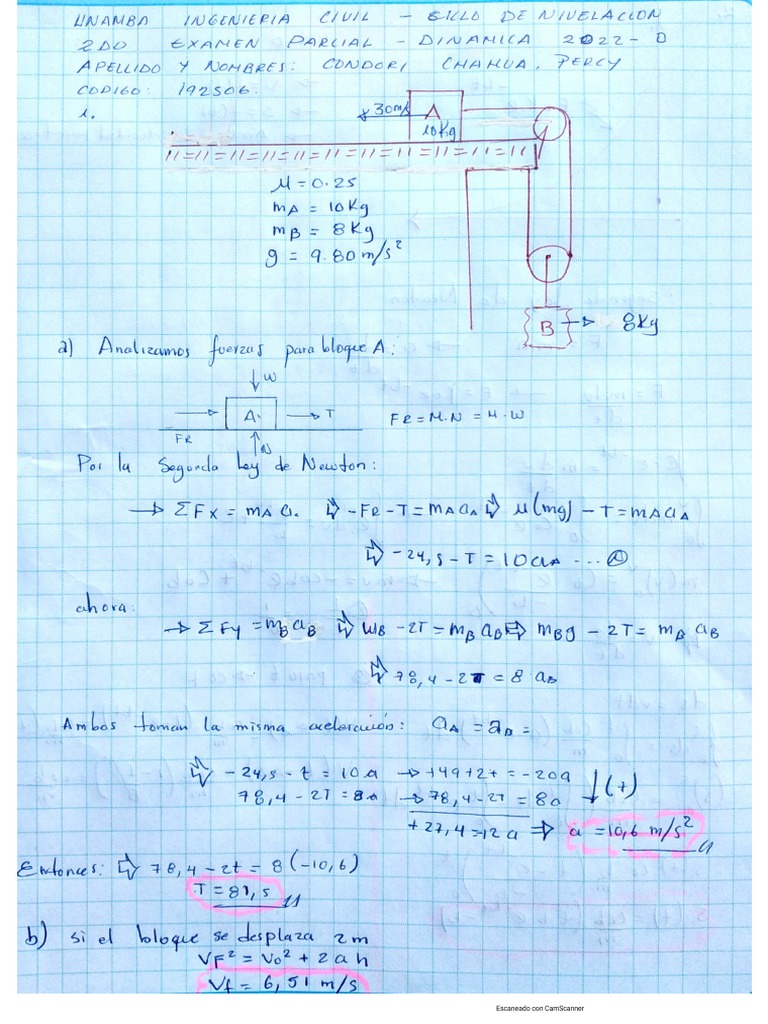 UNAMBA INGENIERIA CIVIL - CICLO DE NIVELACION
2DO EXAMEN PARCIAL - DINAMICA 2022-0
APELLIDO Y NOMBRES: CONDORI CHAHUA, PERCY
CODIGO: 192506.
1.
30m/s A
10Kg
μ = 0.25
mA = 10Kg
mB = 8Kg
g = 9.80 m/s²
B → 8Kg
a) Analizamos fuerzas para bloque A:
↓ W
→ A. → T FR = μ.N = μ.W
FR ↑N
Por la Segunda Ley de Newton:
→ ΣFx = mA a. ⇒ -FR - T = mA aA ⇒ μ(mg) - T = mA aA
⇒ -24,5 - T = 10aA ...
ahora:
→ ΣFy = mB aB ⇒ WB - 2T = mB aB ⇒ mBg - 2T = mA aB
⇒ 78,4 - 2T = 8 aB
Ambos toman la misma aceleración: aA = aB =
⇒ -24,5 - t = 10a → +49 + 2t = -20a
78,4 - 2T = 8a → 78,4 - 2T = 8a ↓(+)
+27,4 = 12a ⇒ a = 10,6 m/s²
Entonces: ⇒ 78,4 - 2t = 8(-10,6)
T = 81,5
b) si el bloque se desplaza 2m
VF² = Vo² + 2ah
Vf = 6,51 m/s
Escaneado con CamScanner